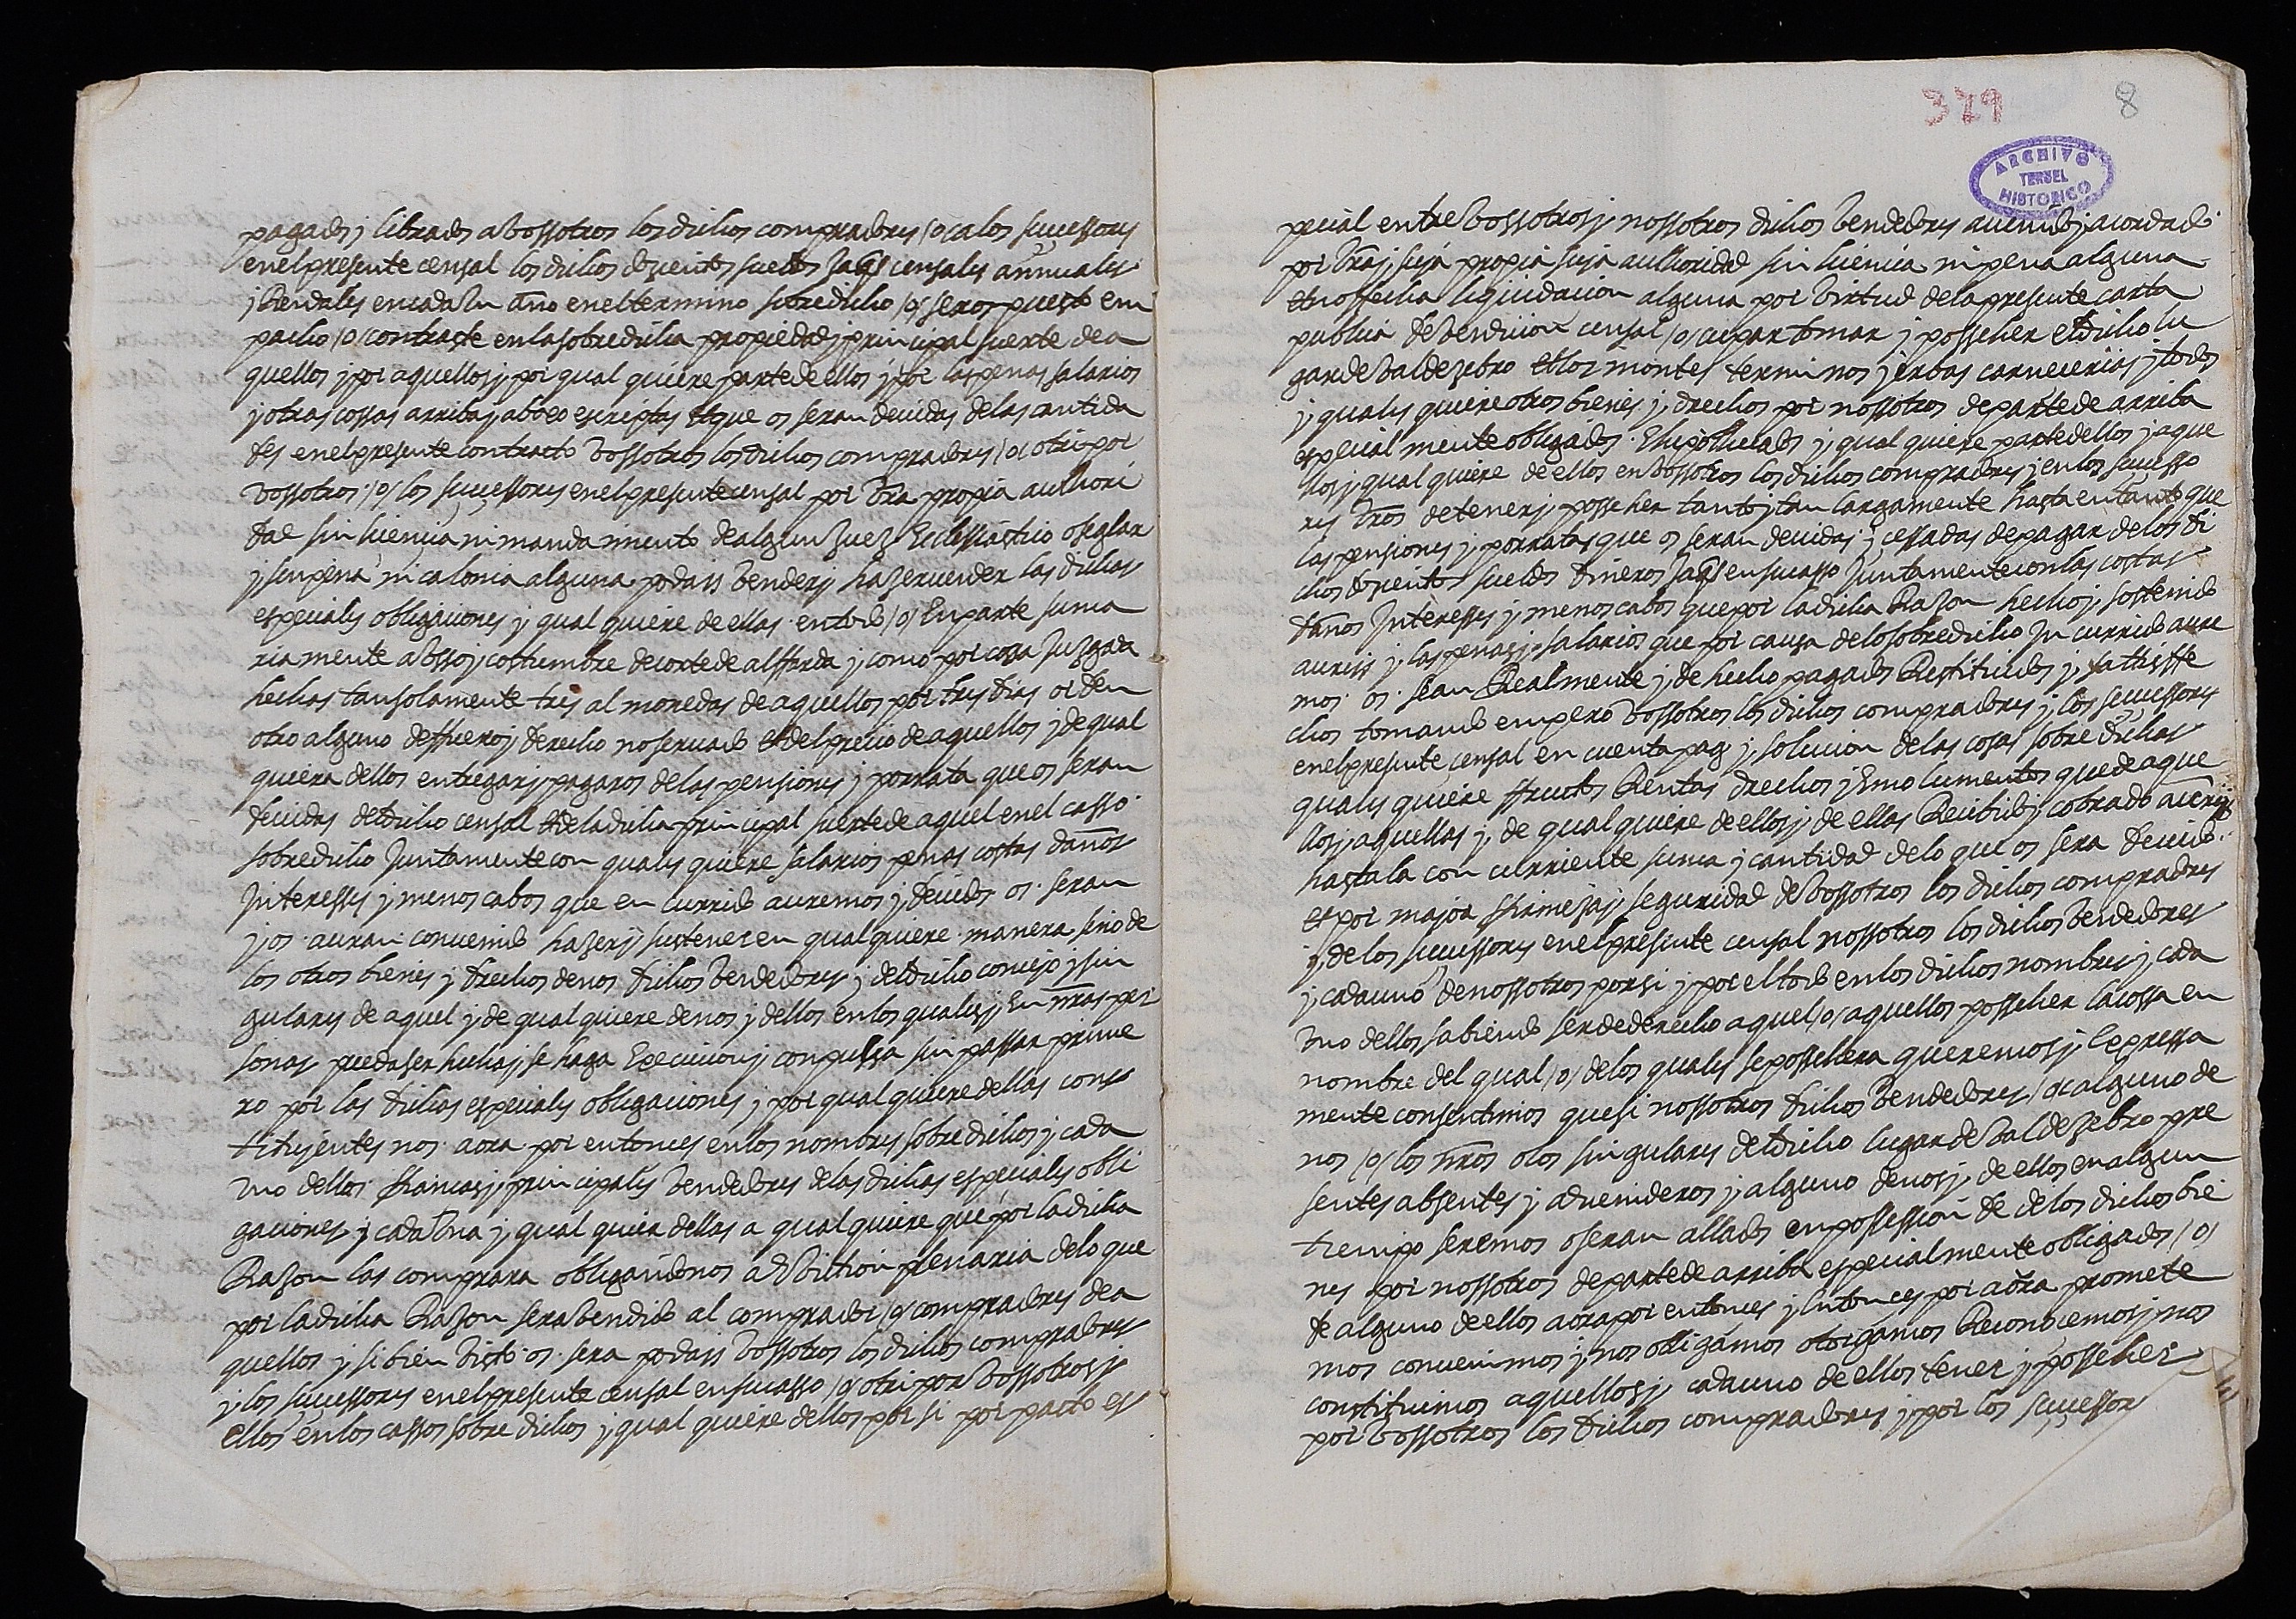 pagados y librados a Vossotros los dichos compradores /o/ a los successores
en el presente censal los dichos dozientos sueldos Jaqs censales annuales
y Rendales en cada Un año en el termino sobredicho /o/ seros puesto em
pacho /o/ contraste en la sobredicha propiedad y principal suerte de a
quellos y por aquellos y por qual quiere parte de ellos y por las penas salarios
y otras cossas arriba y abaxo escriptas et que os seran devidas de las cantida
des en el presente contracto Vossotros los dichos compradores /o/ otri por
Vossotros /o/ los successores en el presente censal por Vra propia authori
dad sin licencia ni mandamiento de algun Juez Ecclessiastico o seglar
y sin pena ni calonia alguna podais Vender y hazer vender las dichas
especiales obligaciones y qual quiere de ellas en todo /o/ En parte suma
riamente a Vsso y costumbre de corte de alffarda y como por cosa Juzgada
hechas tan solamente tres almonedas de aquellos por tres dias orden
otro alguno de ffuero y derecho no servado Et del precio de aquellos y de qual
quiera dellos entregar y pagaros de las pensiones y porrata que os seran
devidas del dicho censal et de la dicha principal suerte de aquel en el casso
sobredicho Juntamente con quales quiere salarios penas costas daños
Interesses y menoscabos que en currido auremos y devidos os seran
y os auran convenido hazer y sustener en qual quiere manera sino de
los otros bienes y drechos de nos dichos Vendedores y del dicho concejo y sin
gulares de aquel y de qual quiere de nos y dellos en los quales y En nras per
sonas pueda ser hecha y se haga Execucion y compulsa sin passar prime
ro por las dichas especiales obligaciones y por qual quiere dellas cons
tituyentes nos aora por entonces en los nombres sobredichos y cada
Uno dellos ffiancas y principales Vendedores de las dichas especiales obli
gaciones y cada Una y qual quier dellas a qual quiere que por la dicha
Razon las comprara obligandonos a eviction plenaria de lo que
por la dicha Razon sera Vendido al comprador /o/ compradores de a
quellos y si bien Visto os sera podais Vossotros los dichos compradores
y los successores en el presente censal en su casso /o/ otri por Vossotros y
ellos en los cassos sobre dichos y qual quiere dellos por si por pacto es
379
8
ARCHIVO
TERUEL
HISTORICO
pecial entre Vossotros y nossotros dichos Vendedores avenido y acordado
por Vra y suya propia suya authoridad sin licencia ni pena alguna
et no ffecha liquidacion alguna por Virtud de la presente carta
publica de Vendicion censal /o/ ocupar tomar y posseher el dicho lu
gar de Valdezebro et los montes terminos yerbas carnecerias y todos
y quales quiere otros bienes y drechos por nossotros de parte de arriba
especial mente obligados E hipothecados y qual quiere parte dellos y aque
llos y qual quiere de ellos en Vossotros los dichos compradores y en los sucesso
res Vros detener y posseher tanto y tan largamente hasta en tanto que
las pensiones y porratas que os seran devidas y cessadas de pagar de los di
chos dozientos sueldos dineros Jaqs en su casso Juntamente con las costas
daños Interesses y menoscabos que por la dicha Razon hecho y sostenido
aureis y las penas y salarios que por causa de lo sobredicho In currido aure
mos os sean Realmente y de hecho pagados Restituidos y sattisffe
chos tomando empero Vossotros los dichos compradores y los successores
en el presente censal en cuenta paga y solucion de las cosas sobre dichas
quales quiere ffructos Rentas drechos y Emolumentos que de aque
llos y aquellas y de qual quiere de ellos y de ellas Recibido y cobrado aureis
hasta la con curriente suma y cantidad de lo que os sera devido
et por major ffirmeza y seguridad de Vossotros los dichos compradores
y de los successores en el presente censal nossotros los dichos Vendedores
y cada uno de nossotros por si y por el todo en los dichos nombres y cada
Uno dellos sabiendo ser de derecho aquel /o/ aquellos posseher la cossa en
nombre del qual /o/ de los quales se possehera queremos y Expressa
mente consentimos que si nossotros dichos Vendedores /o/ alguno de
nos /o/ los nros o los singulares del dicho lugar de Valdezebro pre
sentes absentes y advenideros y alguno de nos y de ellos en algun
tiempo seremos o seran allados en possession de de los dichos bie
nes por nossotros de parte de arriba especialmente obligados /o/
de alguno de ellos aora por entonces y Entonces por aora promete
mos convenimos y nos obligamos otorgamos Reconocemos y nos
constituimos aquellos y cada uno de ellos tener y posseher
por Vossotros los dichos compradores y por los successores